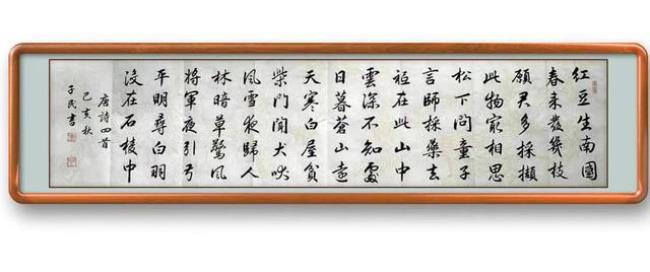 紅豆生南國
春來發幾枝
願君多採擷
此物最相思
松下問童子
言師採藥去
祗在此山中
雲深不知處
日暮蒼山遠
天寒白屋貧
柴門聞犬吠
風雪夜歸人
林暗草驚風
將軍夜引弓
平明尋白羽
沒在石棱中
唐詩四首
己亥秋
子民書